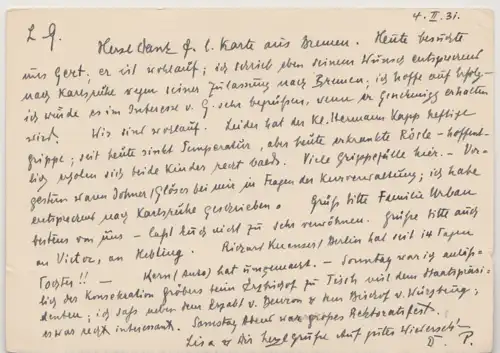 4. II. 31.
L. G.
Herzl. Dank f. l. Karte aus Bremen. Heute besuchte
uns Gert; er ist wohlauf; ich schrieb eben seinem Wunsch entsprechend
nach Karlsruhe wegen seiner Zulassung nach Bremen; ich hoffe auf Erfolg –
ich würde es im Interesse v. G. sehr begrüssen, wenn die Genehmigg erhalten
wird. Wir sind wohlauf. Leider hat der Kl. Hermann Kapp heftige
Grippe; seit heute sinkt Temperatur, aber heute erkrankte Rösle – hoffent-
lich erholen sich beide Kinder recht bald. Viele Grippefälle hier. – Vor-
gestern waren Dohner/Glöser bei mir in Fragen der Kurverwaltung; ich habe
entsprechend nach Karlsruhe geschrieben. Grüß bitte Familie Urban
bestens von uns – laßt Euch nicht zu sehr verwöhnen. Grüße bitte auch
an Victor, an Kebling. Richard /Berlin hat seit 14 Tagen
Tochter!! – Kern (Anso) hat umgemacht. – Sonntag war ich anläß-
lich der Konsekration Gröbers beim Erzbischof zu Tisch mit dem Staatspräsi-
denten; ich saß neben dem Erzabt v. Beuron & dem Bischof v. Würzburg;
es war recht interessant. Samstag Abend war großes Rektoratsfest.
Lisa & Dir herzl. Grüße Auf gutes Wiederseh'n
D. P.